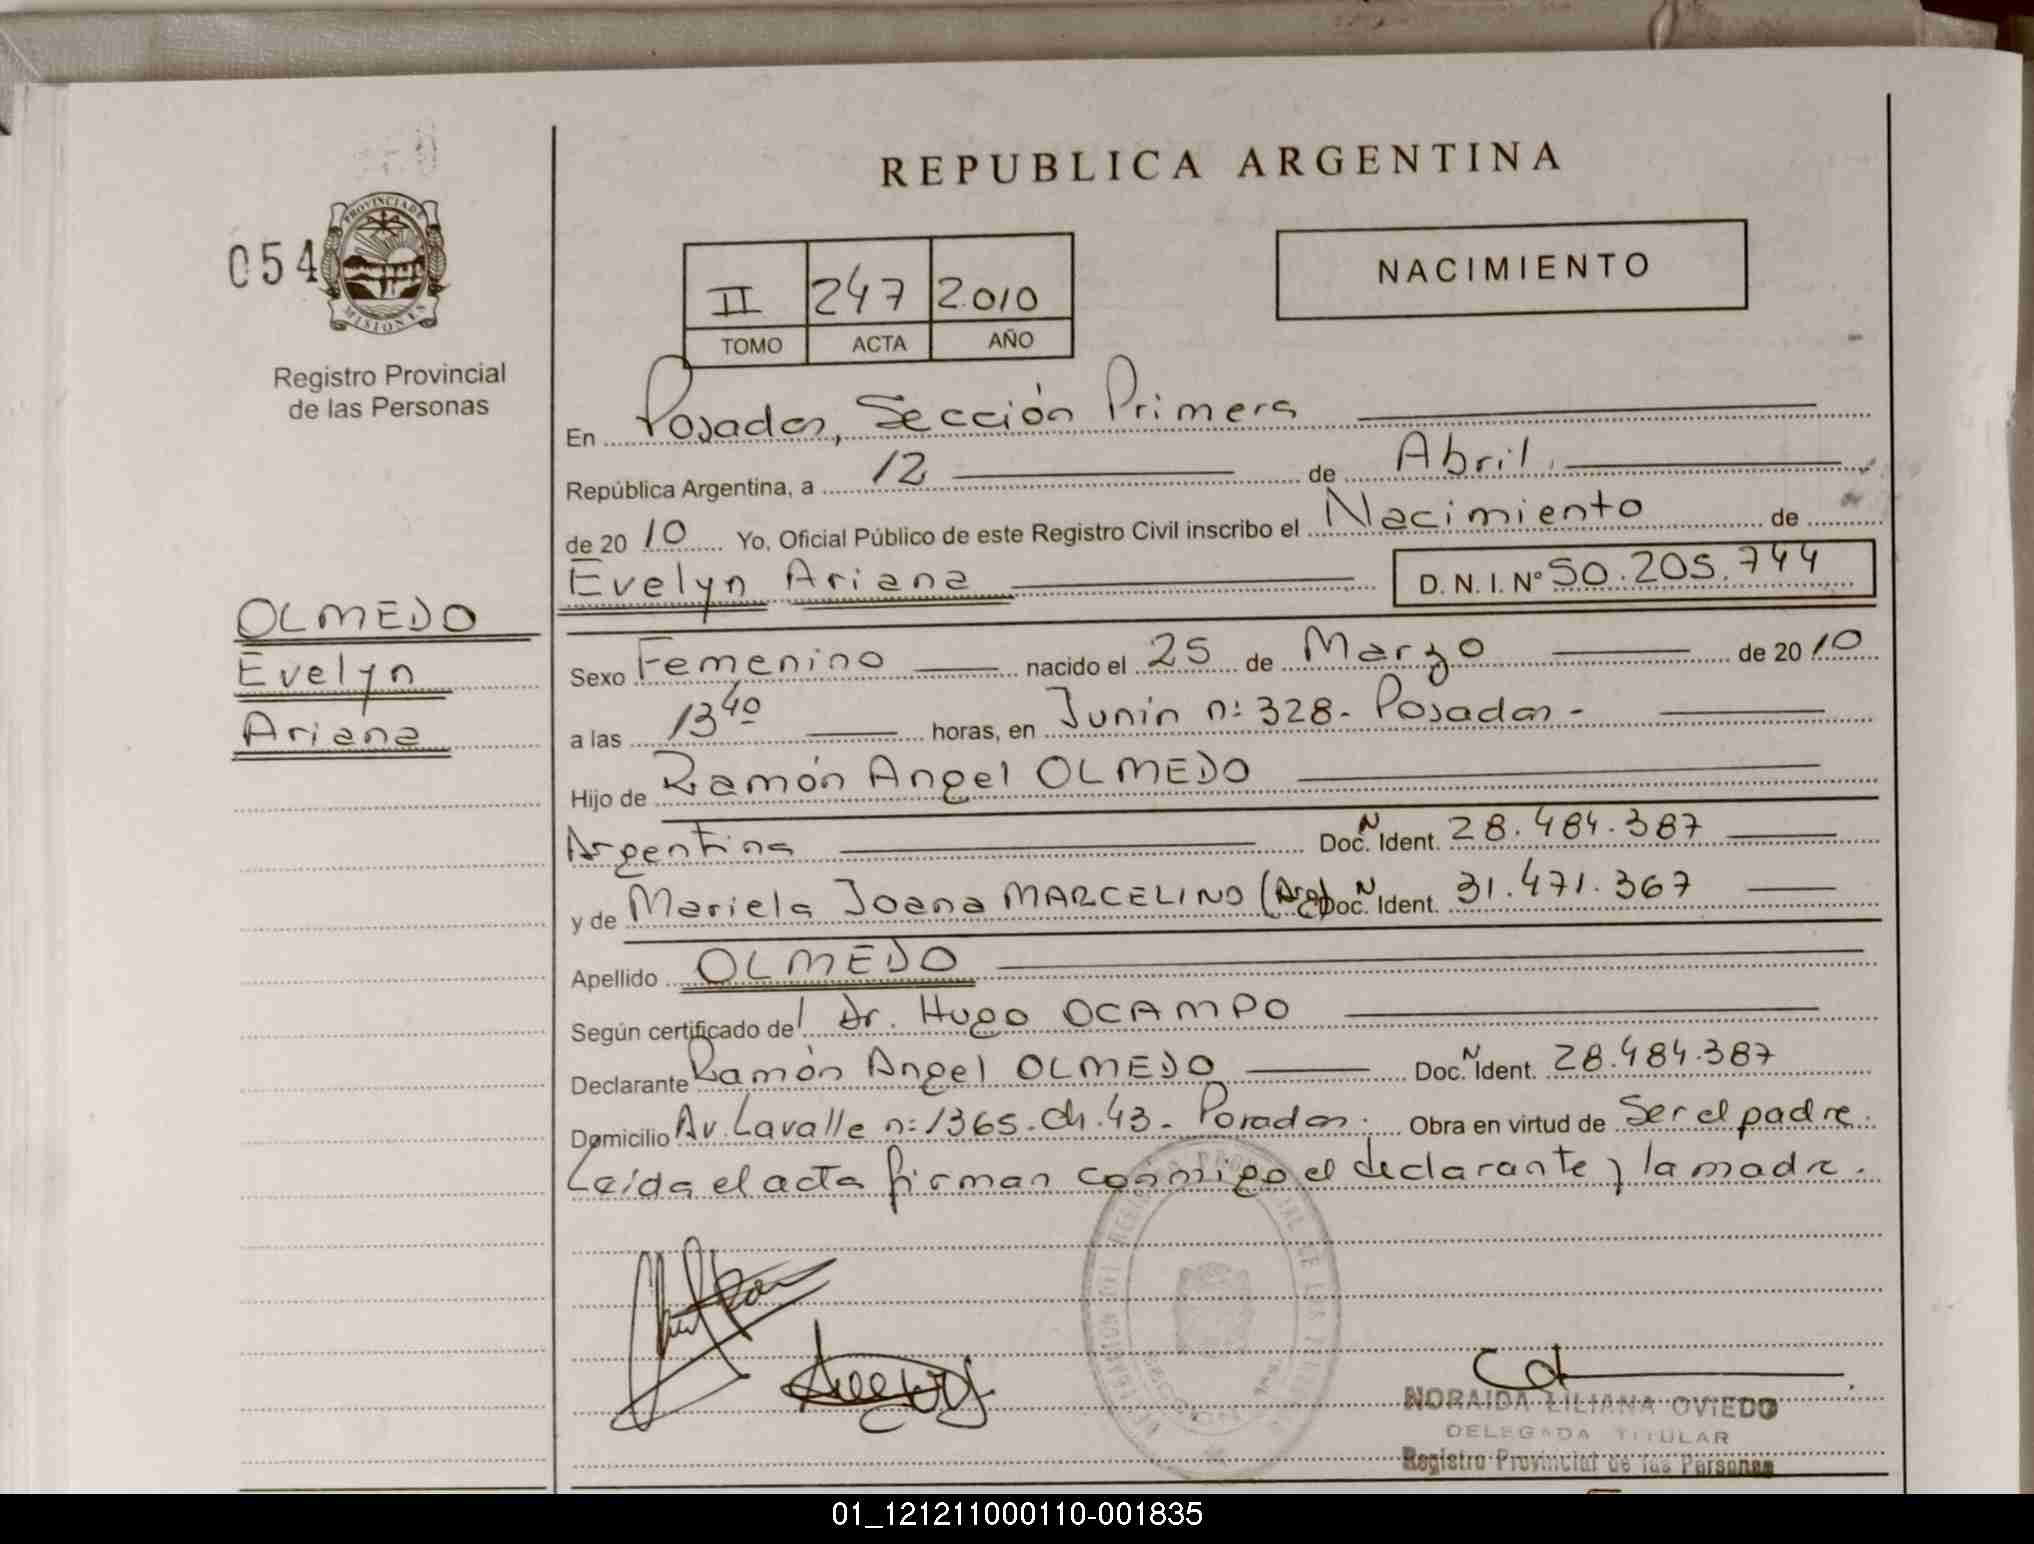 REPUBLICA ARGENTINA
054
PROVINCIA DE
MISIONES
Registro Provincial
de las Personas
II 247 2.010
TOMO ACTA AÑO
NACIMIENTO
En Posadas, Sección Primera
República Argentina, a 12 de Abril
de 2010 Yo, Oficial Público de este Registro Civil inscribo el Nacimiento de
Evelyn Ariana D. N. I. Nº 50.205.744
OLMEDO
Evelyn
Ariana
Sexo Femenino nacido el 25 de Marzo de 2010
a las 13 40 horas, en Junin n: 328- Posadas-
Hijo de Ramón Angel OLMEDO
Argentina Doc. N Ident. 28.484.387
y de Mariela Joana MARCELINO (Arg) Doc. N Ident. 31.471.367
Apellido OLMEDO
Según certificado del Dr. Hugo OCAMPO
Declarante Ramón Angel OLMEDO Doc. N Ident. 28.484.387
Domicilio Av. Lavalle n: 1365. Ch. 43- Posadas. Obra en virtud de Ser el padre.
Leída el acta firman conmigo el declarante y la madre.
NORAIDA LILIANA OVIEDO
DELEGADA TITULAR
Registro Provincial de las Personas
01_121211000110-001835